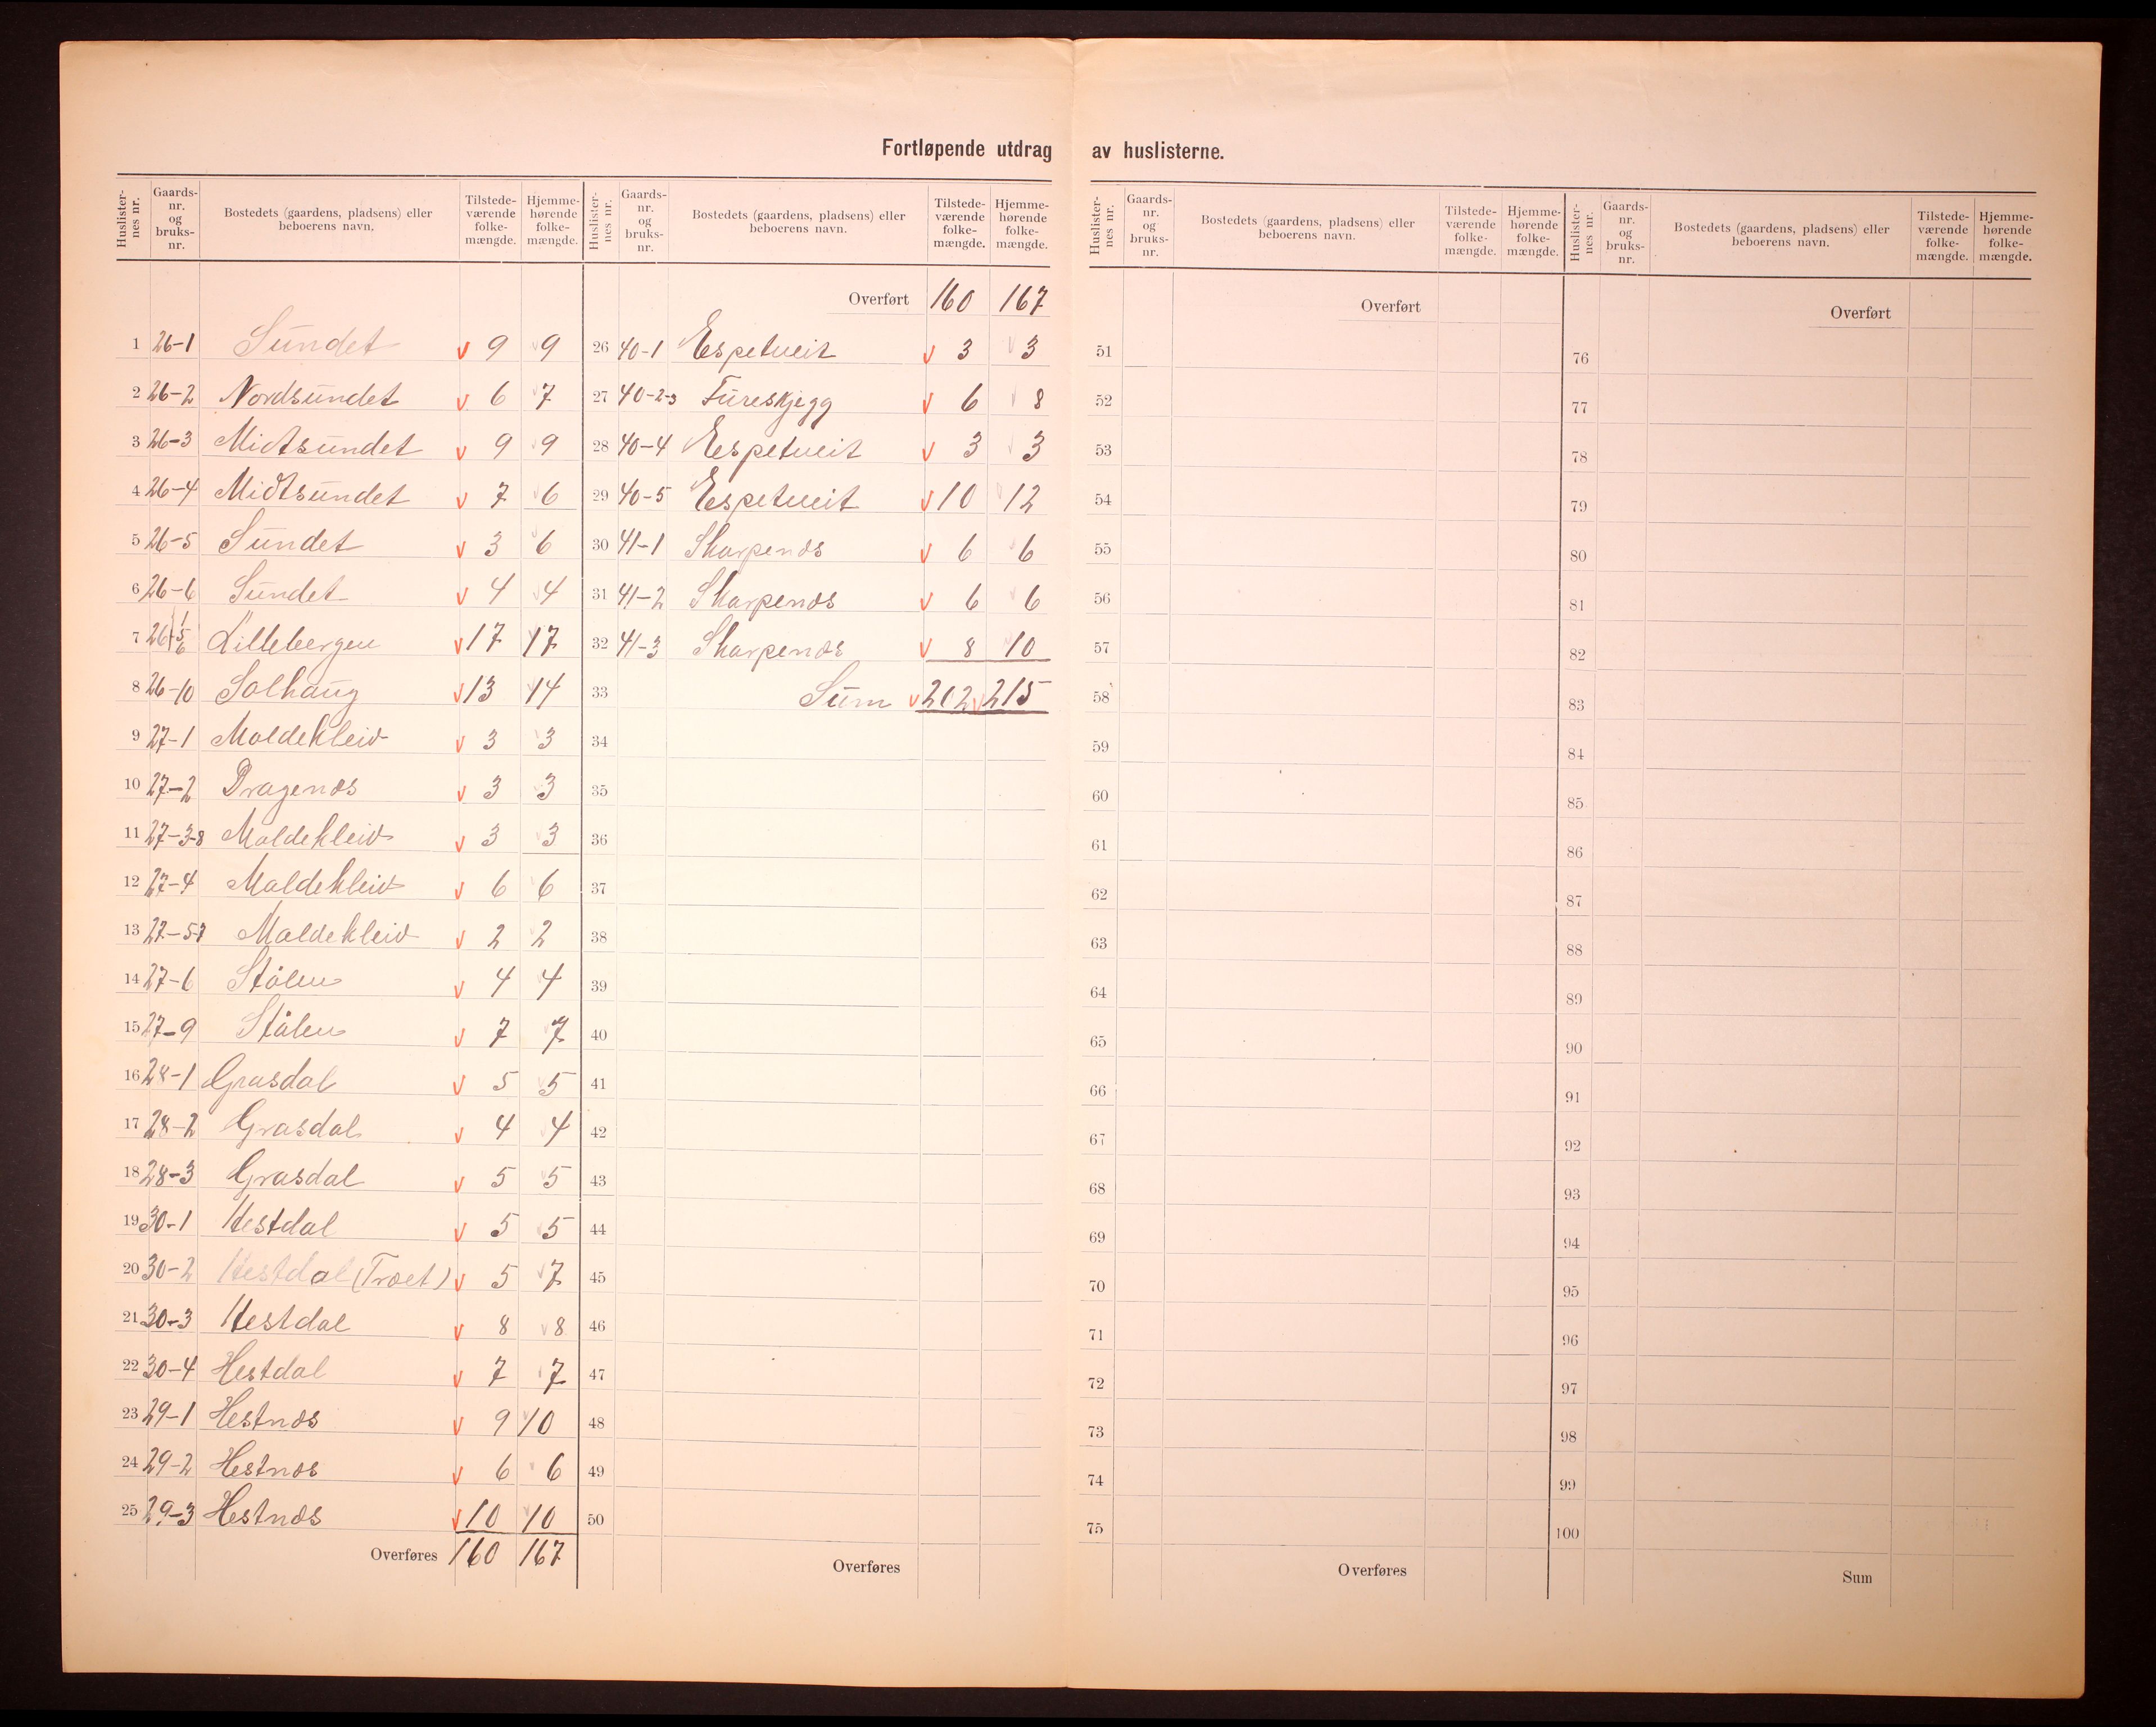 Fortløpende utdrag av huslisterne.
Huslister-nes nr. Gaards-nr. og bruks-nr. Bostedets (gaardens, pladsens) eller beboerens navn. Tilstede-værende folke-mængde. Hjemme-hørende folke-mængde.
1 26-1 Sundet 9 9
2 26-2 Nordsundet 6 7
3 26-3 Midtsundet 9 9
4 26-4 Midtsundet 7 6
5 26-5 Sundet 3 6
6 26-6 Sundet 4 4
7 26 1/5/6 Lillebergen 17 17
8 26-10 Solhaug 13 14
9 27-1 Moldekleiv 3 3
10 27-2 Dragenæs 3 3
11 27-3-8 Moldekleiv 3 3
12 27-4 Moldekleiv 6 6
13 27-5-7 Moldekleiv 2 2
14 27-6 Stålen 4 4
15 27-9 Stålen 7 7
16 28-1 Grasdal 5 5
17 28-2 Grasdal 4 4
18 28-3 Grasdal 5 5
19 30-1 Hestdal 5 5
20 30-2 Hestdal (Træet) 5 7
21 30-3 Hestdal 8 8
22 30-4 Hestdal 7 7
23 29-1 Hestnæs 9 10
24 29-2 Hestnæs 6 6
25 29-3 Hestnæs 10 10
Overføres 160 167
Huslister-nes nr. Gaards-nr. og bruks-nr. Bostedets (gaardens, pladsens) eller beboerens navn. Tilstede-værende folke-mængde. Hjemme-hørende folke-mængde.
Overført 160 167
26 40-1 Espetveit 3 3
27 40-2-3 Fureskjegg 6 8
28 40-4 Espetveit 3 3
29 40-5 Espetveit 10 12
30 41-1 Skarpenæs 6 6
31 41-2 Skarpenæs 6 6
32 41-3 Skarpenæs 8 10
33 Sum 202 215
34
35
36
37
38
39
40
41
42
43
44
45
46
47
48
49
50
Overføres
Huslister-nes nr. Gaards-nr. og bruks-nr. Bostedets (gaardens, pladsens) eller beboerens navn. Tilstede-værende folke-mængde. Hjemme-hørende folke-mængde.
Overført
51
52
53
54
55
56
57
58
59
60
61
62
63
64
65
66
67
68
69
70
71
72
73
74
75
Overføres
Huslister-nes nr. Gaards-nr. og bruks-nr. Bostedets (gaardens, pladsens) eller beboerens navn. Tilstede-værende folke-mængde. Hjemme-hørende folke-mængde.
Overført
76
77
78
79
80
81
82
83
84
85
86
87
88
89
90
91
92
93
94
95
96
97
98
99
100
Sum